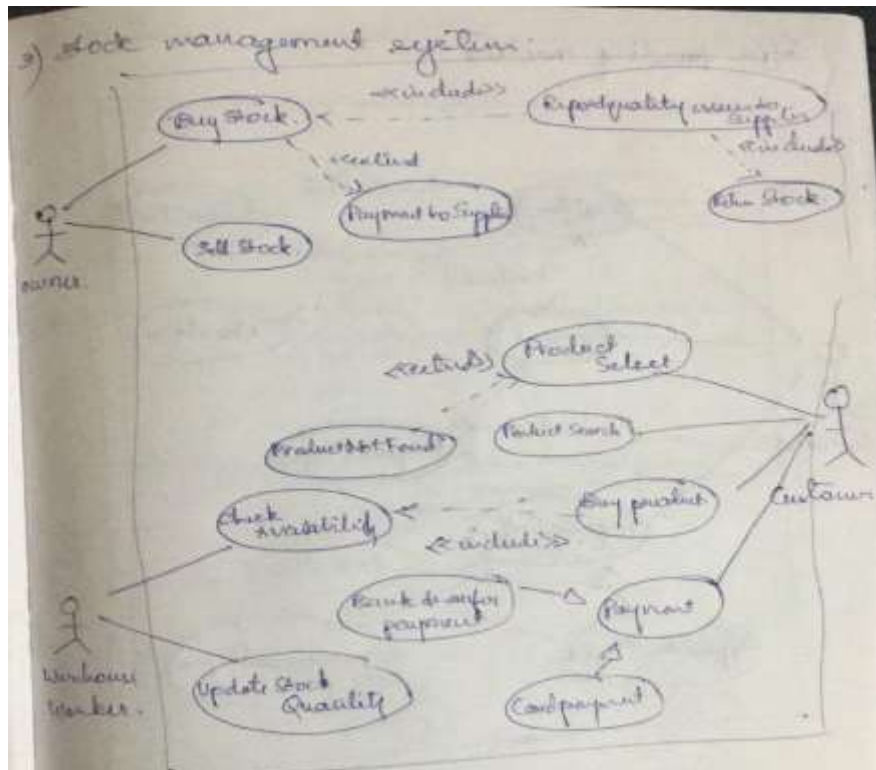 3) Stock management system.
<<includes>>
Buy Stock.
Report quality issues to
Supplier
<<includes>>
<<extend
Payment to Supplier
Return Stock.
Sell Stock
owner.
Product
Select
<<extends>>
Product Search
Product Not Found
Check
Availability
Buy product
Customer
<<includes>>
Bank transfer
payment
Payment
Warehouse
Worker.
Update Stock
Quantity
Card payment